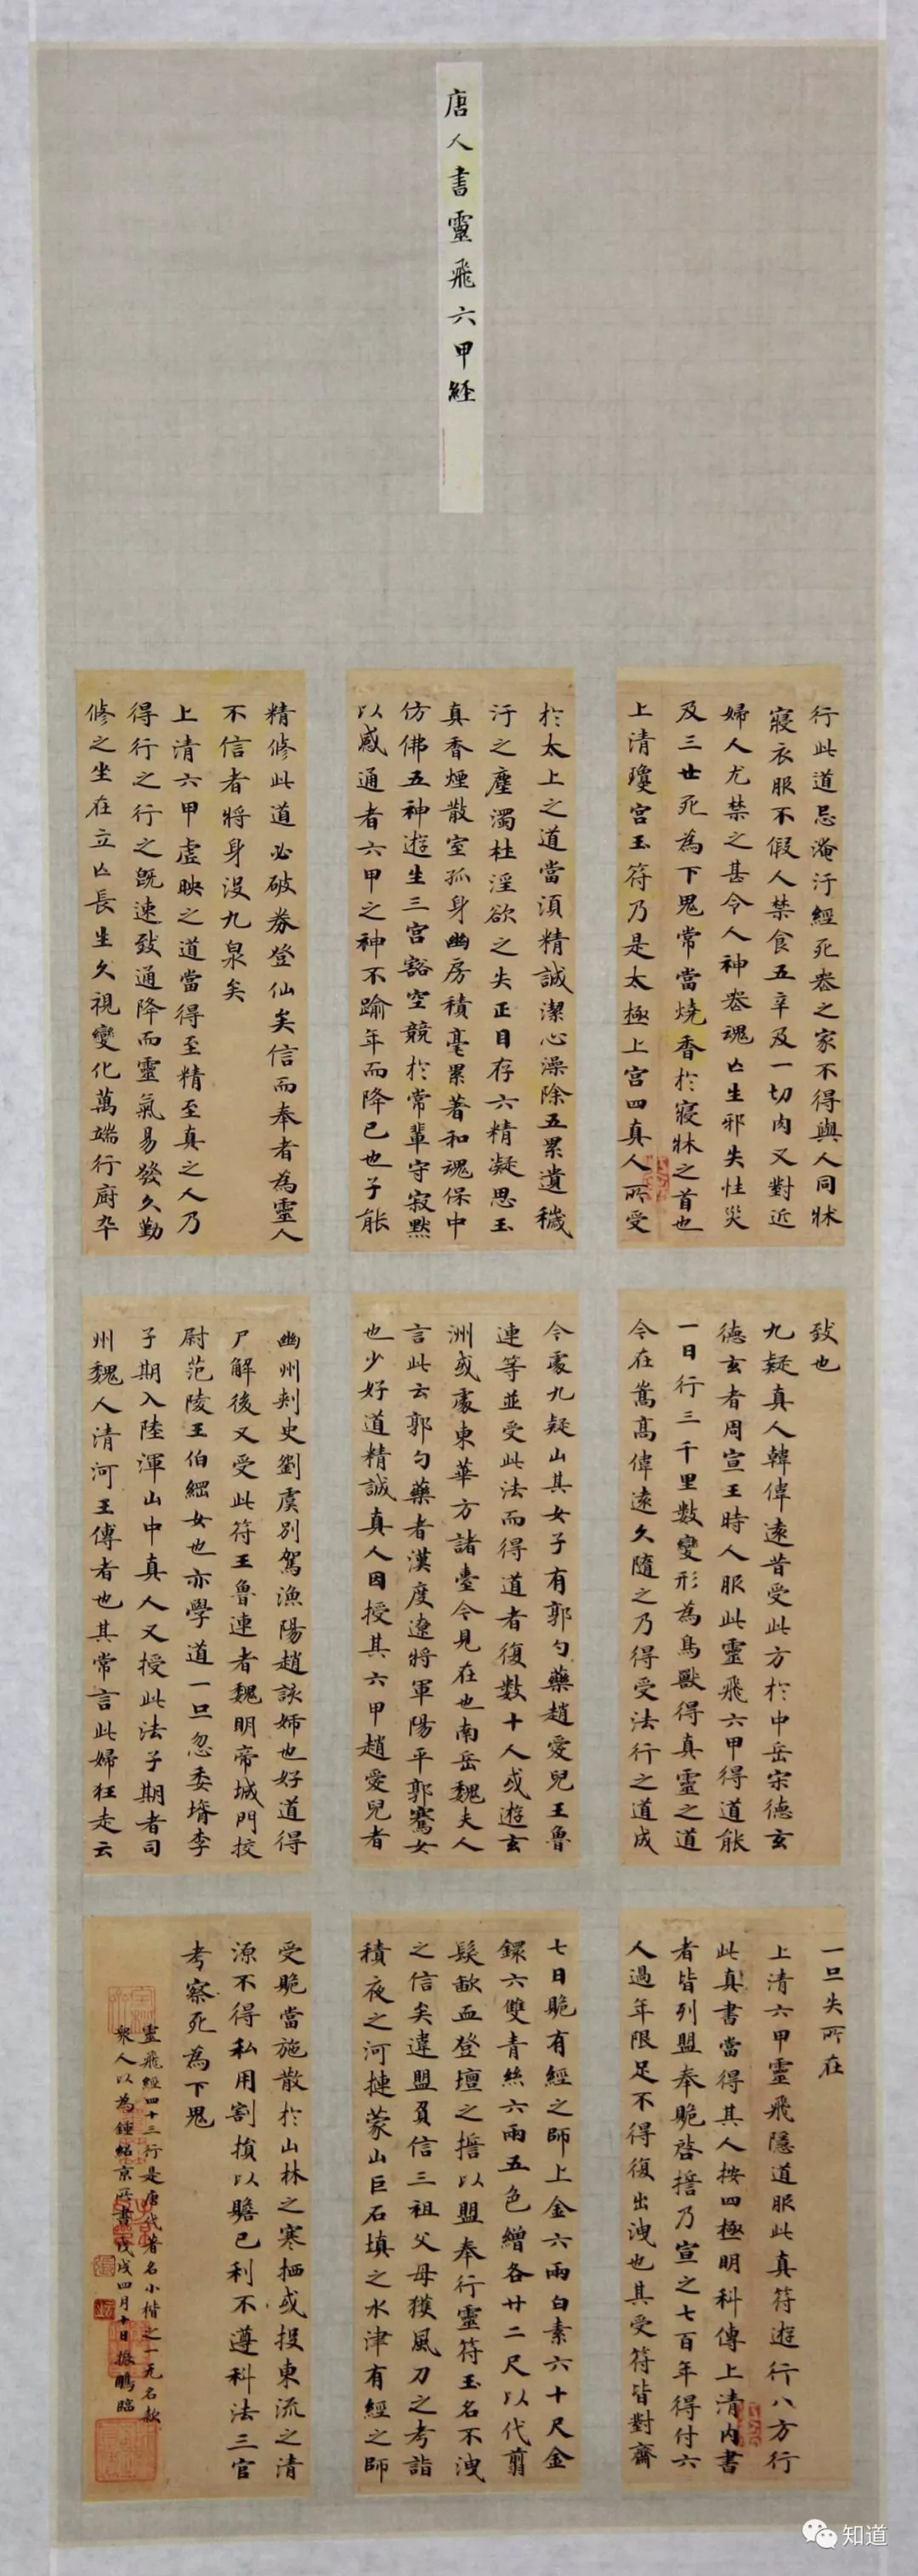 唐人書靈飛六甲經
行此道忌淹汙經死喪之家不得與人同牀
寢衣服不假人禁食五辛及一切肉又對近
婦人尤禁之甚令人神喪魂亡生邪失性災
及三世死為下鬼常當燒香於寢牀之首也
上清瓊宮玉符乃是太極上宮四真人所受
於太上之道當須精誠潔心澡除五累遺穢
汙之塵濁杜淫欲之失正目存六精凝思玉
真香煙散室孤身幽房積毫累著和魂保中
仿佛五神遊生三宮豁空競於常輩守寂默
以感通者六甲之神不踰年而降已也子能
精修此道必破券登仙矣信而奉者為靈人
不信者將身沒九泉矣
上清六甲虛映之道當得至精至真之人乃
得行之行之既速致通降而靈氣易發久勤
修之坐在立亡長生久視變化萬端行廚卒
致也
九疑真人韓偉遠昔受此方於中岳宋德玄
德玄者周宣王時人服此靈飛六甲得道能
一日行三千里數變形為鳥獸得真靈之道
今在嵩高偉遠久隨之乃得受法行之道成
今處九疑山其女子有郭勺藥趙愛兒王魯
連等並受此法而得道者復數十人或遊玄
洲或處東華方諸臺今見在也南岳魏夫人
言此云郭勺藥者漢度遼將軍陽平郭騫女
也少好道精誠真人因授其六甲趙愛兒者
幽州刾史劉虞別駕漁陽趙該姊也好道得
尸解後又受此符王魯連者魏明帝城門挍
尉范陵王伯綱女也亦學道一旦忽委壻李
子期入陸渾山中真人又授此法子期者司
州魏人清河王傅者也其常言此婦狂走云
一旦失所在
上清六甲靈飛隱道服此真符遊行八方行
此真書當得其人按四極明科傳上清內書
者皆列盟奉跪啓誓乃宣之七百年得付六
人過年限足不得復出洩也其受符皆對齋
七日跪有經之師上金六兩白素六十尺金
鐶六雙青絲六兩五色繒各廿二尺以代翦
髮歃血登壇之誓以盟奉行靈符玉名不洩
之信矣違盟負信三祖父母獲風刀之考詣
積夜之河摙蒙山巨石填之水津有經之師
受跪當施散於山林之寒栖或投東流之清
源不得私用割損以贍已利不遵科法三官
考察死為下鬼
靈飛經四十三行是唐代著名小楷之一无名款
眾人以為鍾紹京所書戊戌四月十日振鵬臨
知道